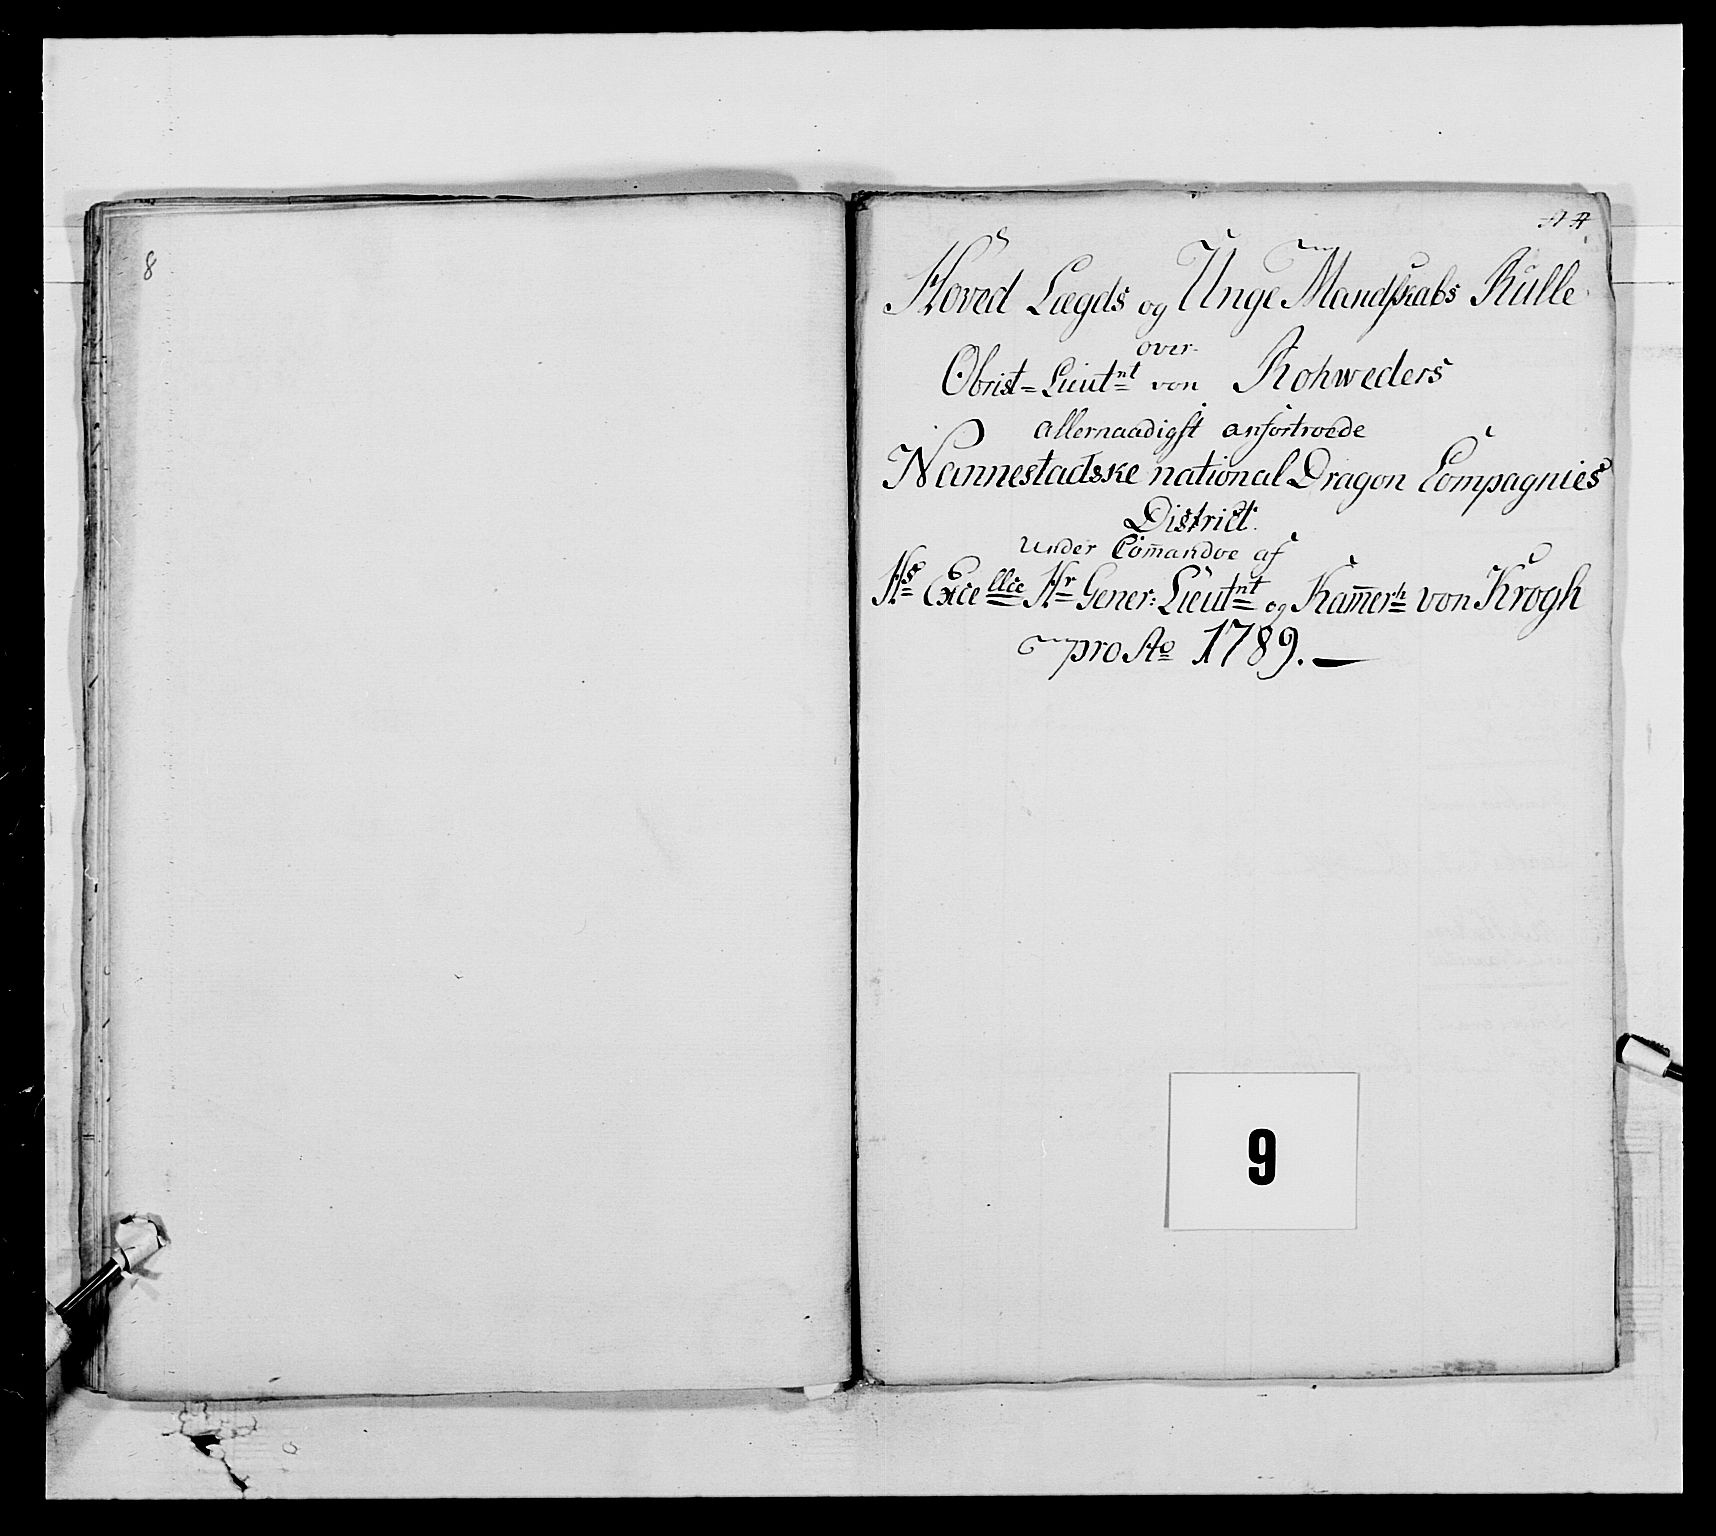 8
Hoved Lægds og Unge Mandskabs Rulle
over
Obrist=Lieutnt von Rohweders
allernaadigst anfortroede
Nannestadske national Dragon Compagnies
District.
under Com̄andoe af
Hs Excellce Hr Gener: Lieutnt og Kam̄erh von Krogh
pro Ao 1789.
9